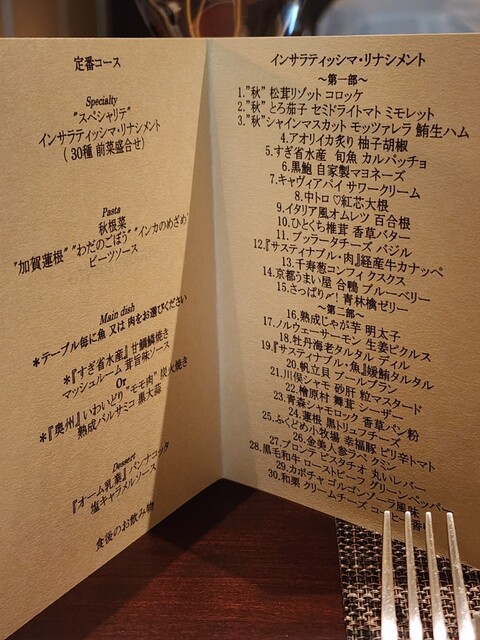 定番コース
Specialty
"スペシャリテ"
インサラティッシマ・リナシメント
( 30種 前菜盛合せ)
Pasta
秋根菜
"加賀蓮根" "わだのごぼう" "インカのめざめ"
ビーツソース
Main dish
*テーブル毎に魚 又は 肉をお選びください
*『すぎ省水産』甘鯛鱗焼き
マッシュルーム 茸旨味ソース
Or
*『奥州』いわいどり "モモ肉" 炭火焼き
熟成バルサミコ 黒大蒜
Dessert
『オーム乳業』パンナコッタ
塩キャラメルソース
食後のお飲み物
インサラティッシマ・リナシメント
～第一部～
1."秋" 松茸リゾット コロッケ
2."秋" とろ茄子 セミドライトマト ミモレット
3."秋"シャインマスカット モッツァレラ 鮪生ハム
4.アオリイカ炙り 柚子胡椒
5.すぎ省水産 旬魚 カルパッチョ
6.黒鮑 自家製マヨネーズ
7.キャヴィアパイ サワークリーム
8.中トロ ♡紅芯大根
9.イタリア風オムレツ 百合根
10.ひとくち椎茸 香草バター
11.ブッラータチーズ バジル
12.『サスティナブル・肉』経産牛カナッペ
13.千寿葱コンフィ クスクス
14.京都うまい屋 合鴨 ブルーベリー
15.さっぱり〆! 青林檎ゼリー
～第二部～
16.熟成じゃが芋 明太子
17.ノルウェーサーモン 生姜ピクルス
18.牡丹海老タルタル ディル
19.『サスティナブル・魚』媛鮪タルタル
20.帆立貝 ブールブラン
21.川俣シャモ 砂肝 粒マスタード
22.檜原村 舞茸 シーザー
23.青森シャモロック 香草パン粉
24.蓮根 黒トリュフチーズ
25.ふくどめ小牧場 幸福豚 ピリ辛トマト
26.金美人参ラペ クミン
27.ブロンテ ピスタチオ 丸いレバー
28.黒毛和牛 ローストビーフ グリーンペッパー
29.カボチャ ゴルゴンゾーラ風味
30.和栗 クリームチーズ コーヒー香